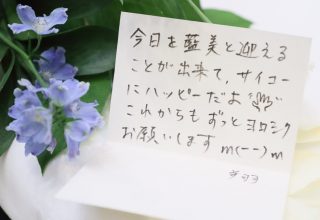 今日を藍美と迎える
ことが出来て、サイコー
にハッピーだよ
これからもずっとヨロシク
お願いします m(--)m